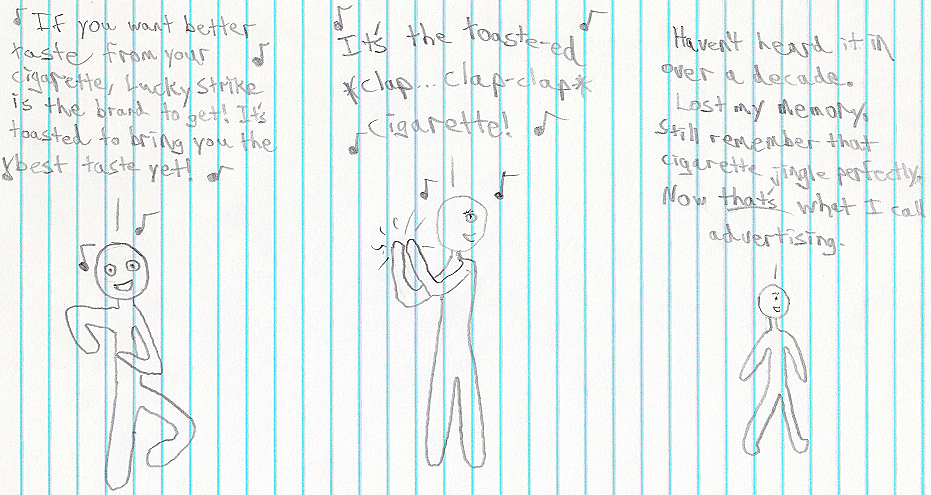 If you want better
taste from your
cigarette, Lucky Strike
is the brand to get! It's
toasted to bring you the
best taste yet!
It's the toaste-ed
*clap... clap-clap*
cigarette!
Haven't heard it in
over a decade.
Lost my memory.
Still remember that
cigarette jingle perfectly.
Now that's what I call
advertising.